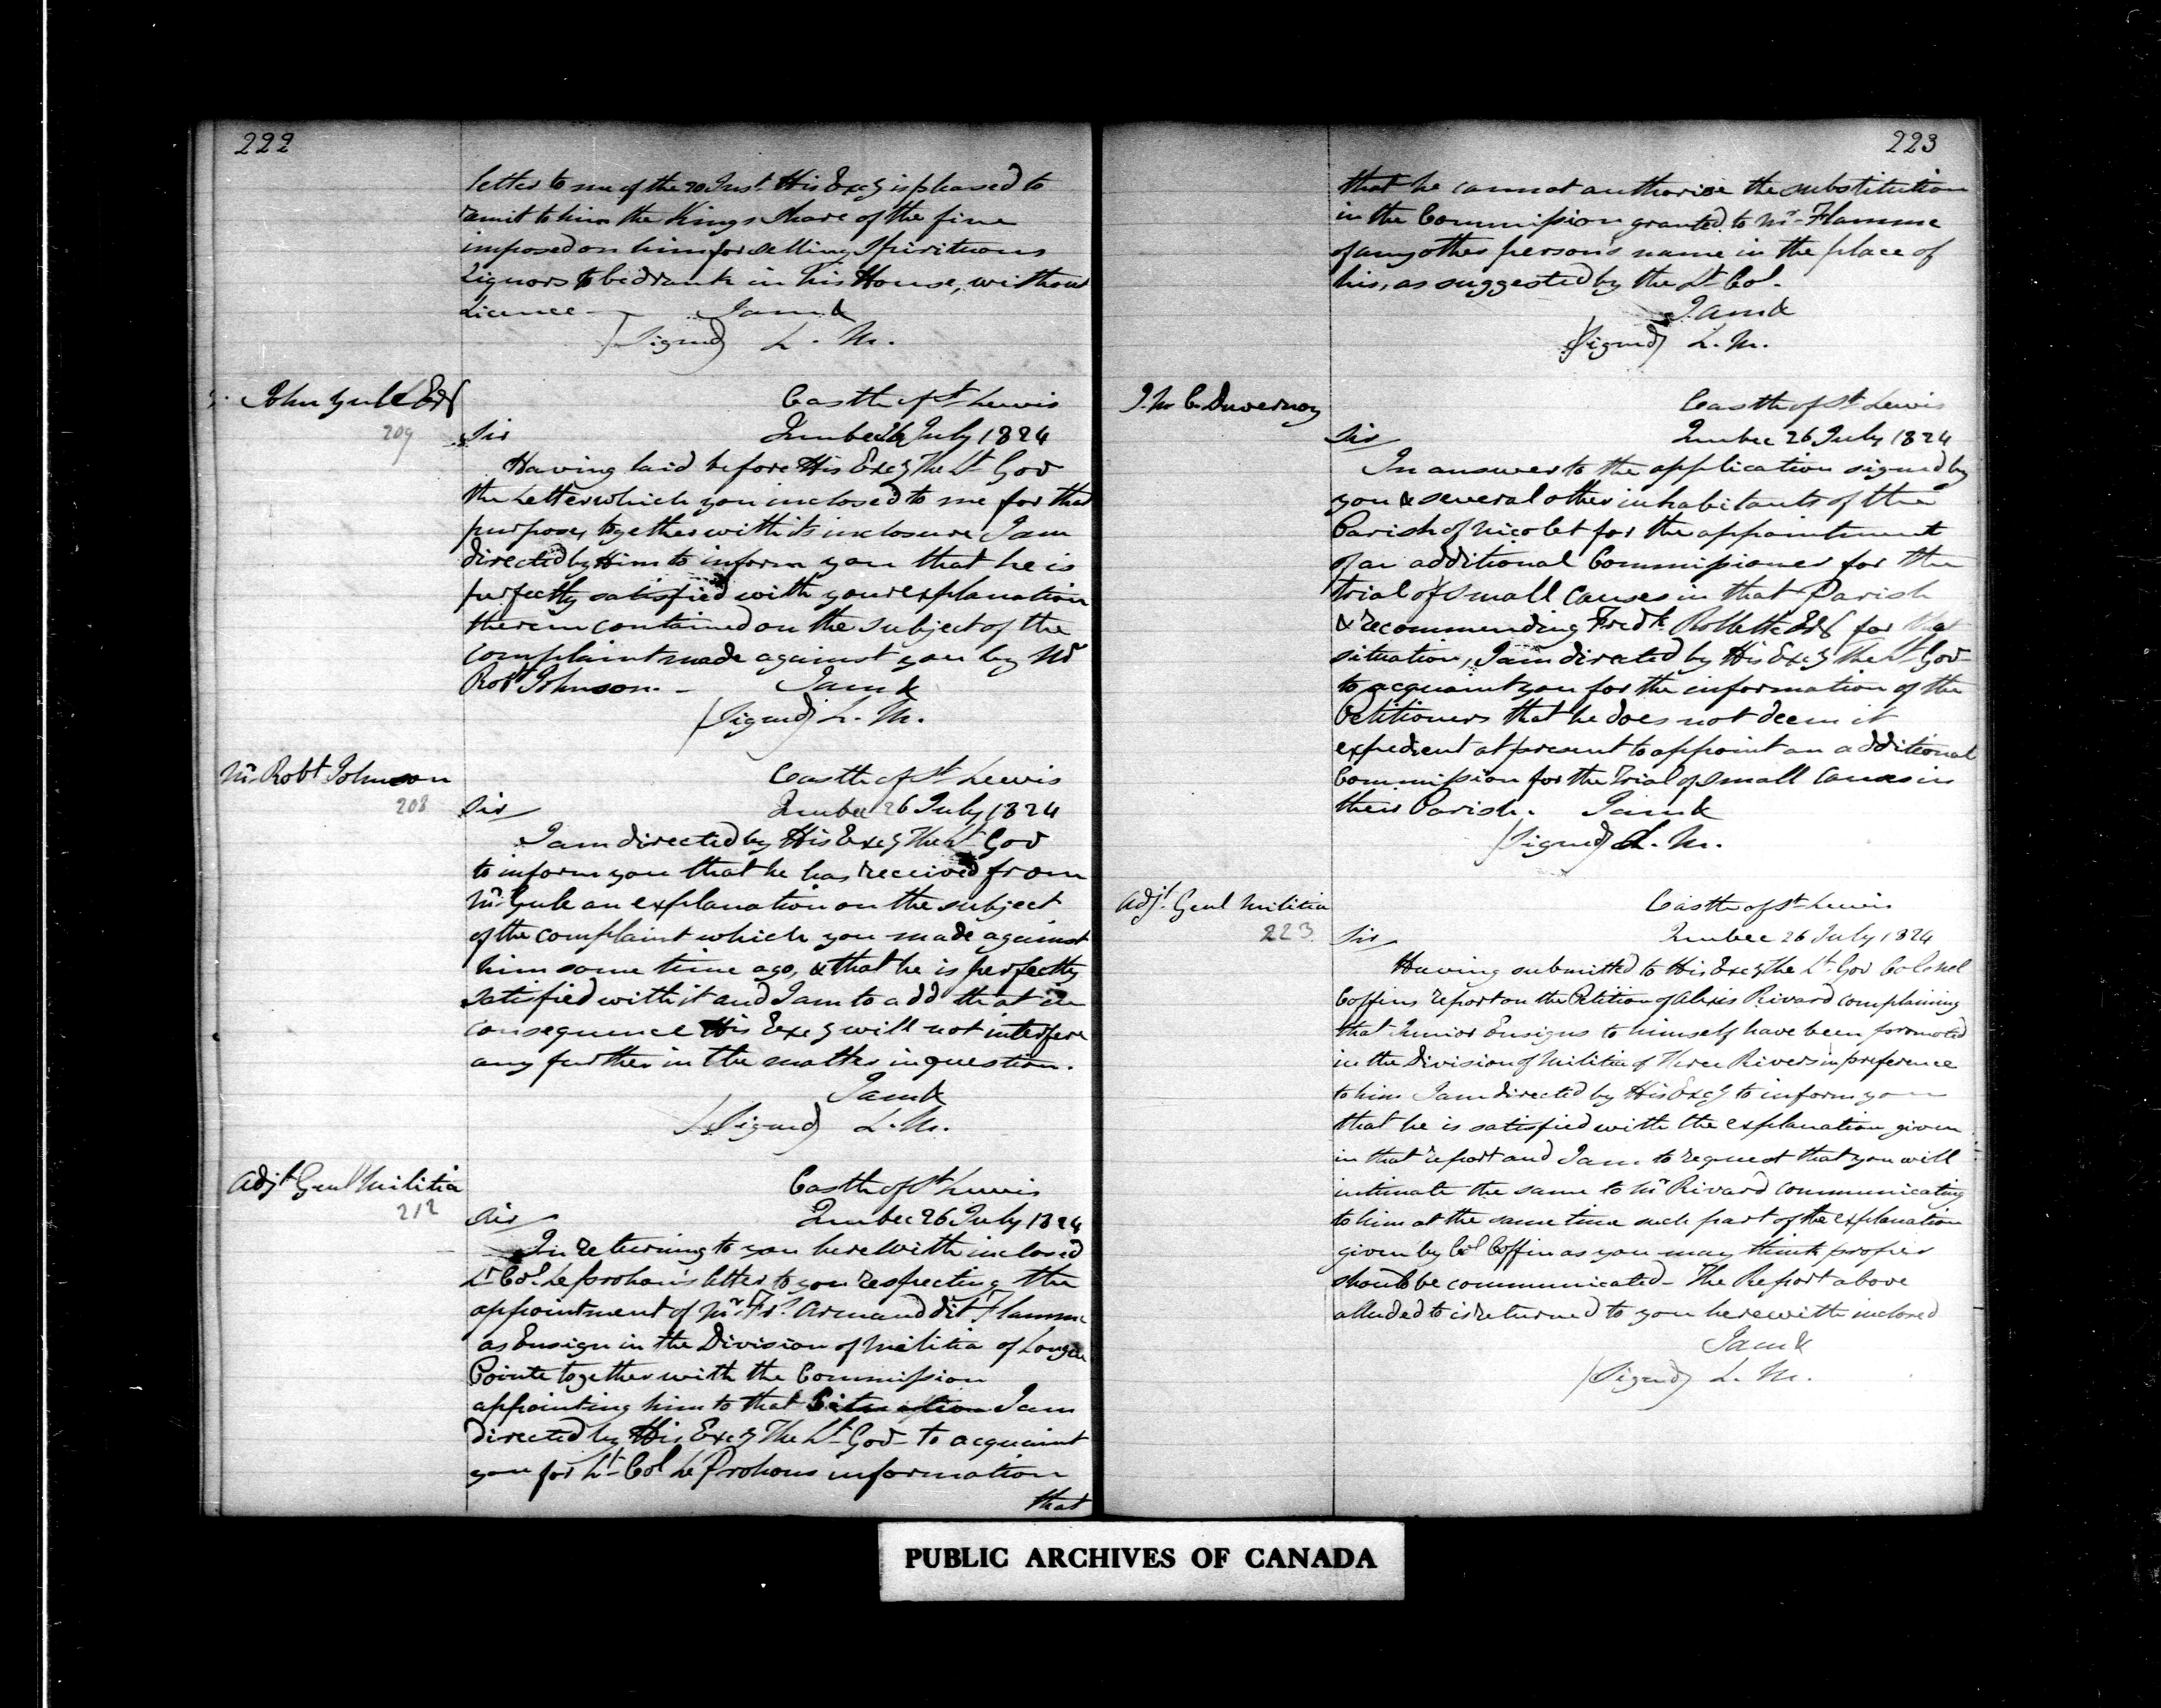 222
letter to me of the 20 Inst. His Excy is pleased to
remit to him the Kings Share of the fine
imposed on him for selling Spirituous
Liquors to be drank in his House, without
Licence — I am &
(Signed) L. M.
John Yule Esqr
209
Castle of St Lewis
Sir Quebec 26 July 1824
Having laid before His Excy The Lt Gov
the Letter which you inclosed to me for that
purpose, together with its inclosure I am
directed by Him to inform you that he is
perfectly satisfied with your explanation
therein contained on the subject of the
complaint made against you by Mr
Robt Johnson. — I am &
(Signed) L. M.
Mr Robt Johnson
208
Castle of St Lewis
Sir Quebec 26 July 1824
I am directed by His Excy The Lt Gov
to inform you that he has received from
Mr Yule an explanation on the subject
of the complaint which you made against
him some time ago, & that he is perfectly
satisfied with it and I am to add that in
consequence His Excy will not interfere
any further in the matter in question.
I am &
(Signed) L. M.
Adjt Genl Militia
212
Castle of St Lewis
Sir Quebec 26 July 1824
In returning to you herewith inclosed
Lt Col. Leprohon's letter to you respecting the
appointment of Mr Frs Armand dit Flamme
as Ensign in the Division of Militia of Longue
Pointe together with the Commission
appointing him to that Situation I am
directed by His Excy The Lt Gov - to acquaint
you for Lt Col Le Prohons information
that
223
that he cannot authorise the substitution
in the Commission granted to Mr Flamme
of any other person's name in the place of
his, as suggested by the Lt Col.
I am &
(Signed) L. M.
J. M. C. Duvernay
Castle of St Lewis
Sir Quebec 26 July 1824
In answer to the application signed by
you & several other inhabitants of the
Parish of Nicolet for the appointment
of an additional Commissioner for the
trial of small causes in that Parish
& recommending Fredk Rollette Esqr for that
situation, I am directed by His Excy The Lt Gov
to acquaint you for the information of the
Petitioners that he does not deem it
expedient at present to appoint an additional
Commission for the Trial of Small Causes in
their Parish. I am &
(Signed) L. M.
Adjt Genl Militia
223
Castle of St Lewis
Sir Quebec 26 July 1824
Having submitted to His Excy the Lt Gov Colonel
Coffins report on the Petition of Alexis Rivard complaining
that Junior Ensigns to himself have been promoted
in the Division of Militia of Three Rivers in preference
to him I am directed by His Excy to inform you
that he is satisfied with the explanation given
in that report and I am to request that you will
intimate the same to Mr Rivard communicating
to him at the same time such part of the explanation
given by Col Coffin as you may think proper
should be communicated - The Report above
alluded to is returned to you herewith inclosed
I am &
(Signed) L. M.
PUBLIC ARCHIVES OF CANADA